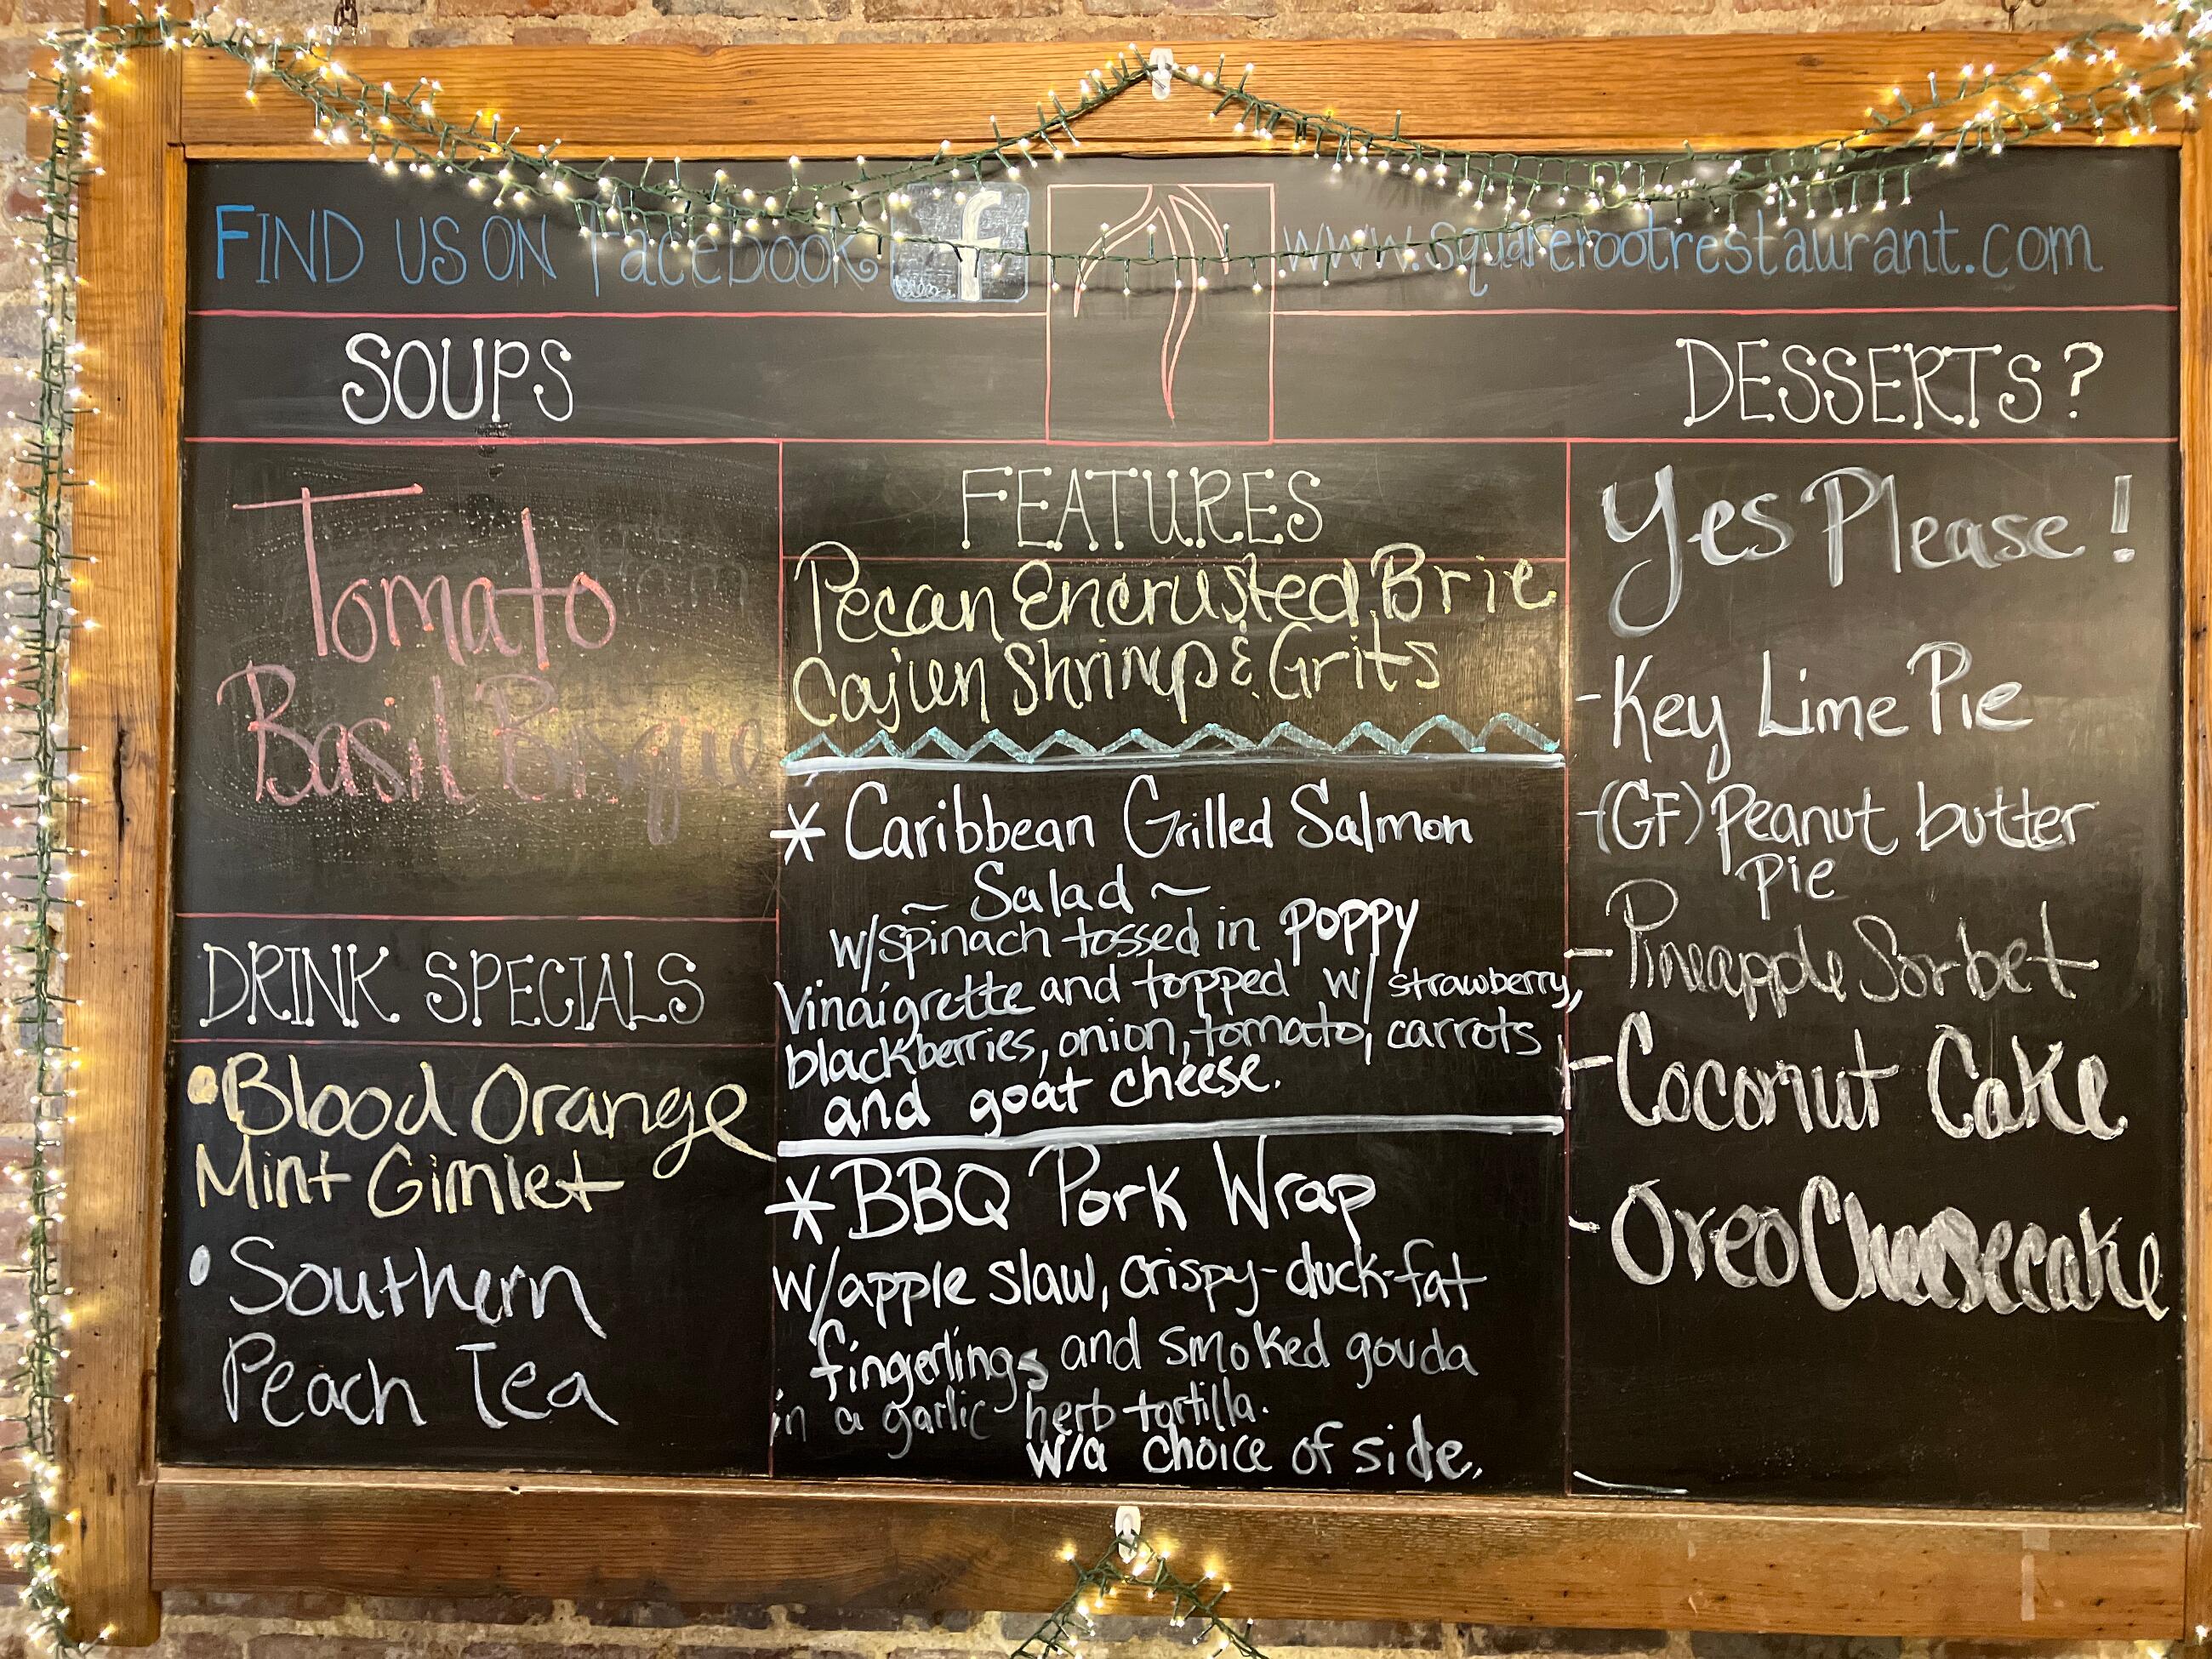 FIND US ON facebook f
www.squarerootrestaurant.com
SOUPS
Tomato
Basil Bisque
DRINK SPECIALS
•Blood Orange
Mint Gimlet
•Southern
Peach Tea
FEATURES
Pecan Encrusted Brie
Cajun Shrimp & Grits
* Caribbean Grilled Salmon
~ Salad ~
w/spinach tossed in poppy
vinaigrette and topped w/ strawberry,
blackberries, onion, tomato, carrots
and goat cheese.
*BBQ Pork Wrap
w/apple slaw, crispy-duck-fat
fingerlings and smoked gouda
in a garlic herb tortilla.
w/a choice of side.
DESSERTS?
Yes Please!
-Key Lime Pie
-(GF) Peanut butter
Pie
-Pineapple Sorbet
-Coconut Cake
-Oreo Cheesecake